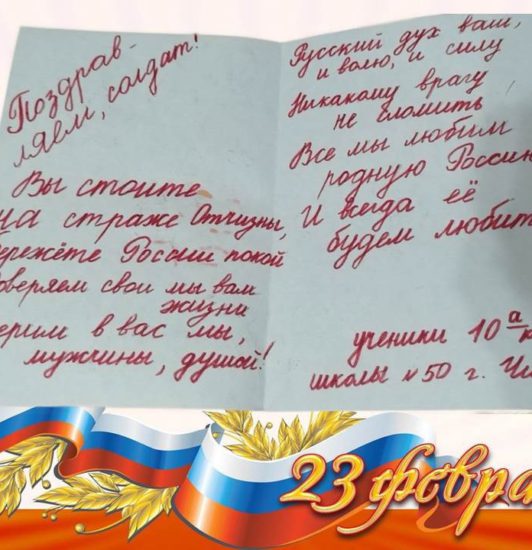 Поздрав-
ляем, солдат!
Вы стоите
на страже Отчизны,
ережёте России покой
оверяем свои мы вам
жизни
ерим в вас мы,
мужчины, душой!
Русский дух ваш,
и волю, и силу
Никакому врагу
не сломить
Все мы любим
родную Росси
И всегда её
будем любит
ученики 10 а
школы №50 г. Чи
23 февра